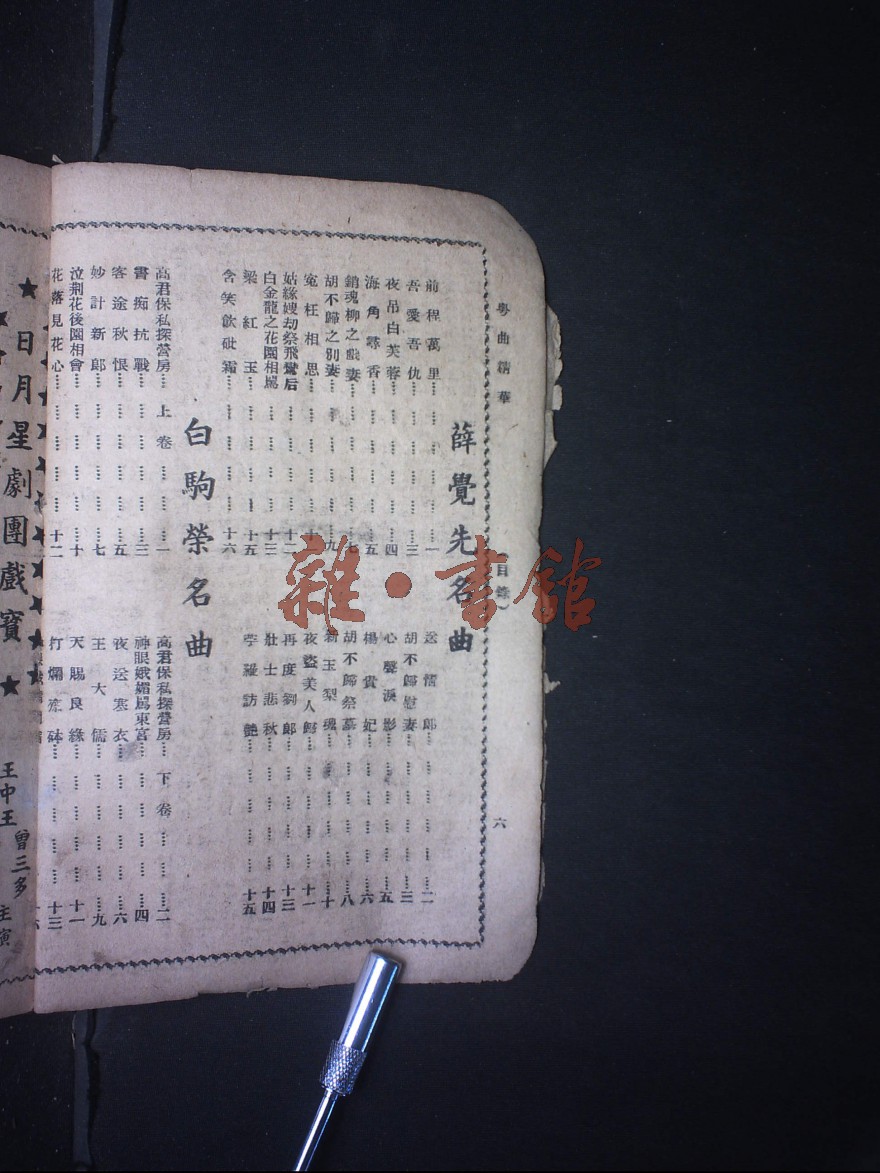 粵曲精華
目錄
六
薛覺先名曲
前程萬里……一
吾愛吾仇……三
夜吊白芙蓉……四
海角尋香……五
銷魂柳之戲妻……七
胡不歸之別妻……九
冤枉相思
姑緣嫂劫祭飛鸞后……十二
白金龍之花園相罵……十三
梁紅玉……十五
含笑飲砒霜……十六
送情郎……二
胡不歸慰妻……三
心聲淚影……五
楊貴妃……六
胡不歸祭墓……八
新玉梨魂……十
夜盜美人歸……十一
再度劉郎……十三
壯士悲秋……十四
苧蘿訪艷……十五
白駒榮名曲
高君保私探營房……上卷……一
書痴抗戰……三
客途秋恨……五
妙計新郎……七
泣荆花後園相會……十
花落見花心……十二
高君保私探營房……下卷……二
神眼娥媚罵東宮……四
夜送寒衣……六
王大儒……九
天賜良緣……十一
打爛缽……十三
★日月星劇團戲寶★
王中王
曾三多
主演
雜·書館